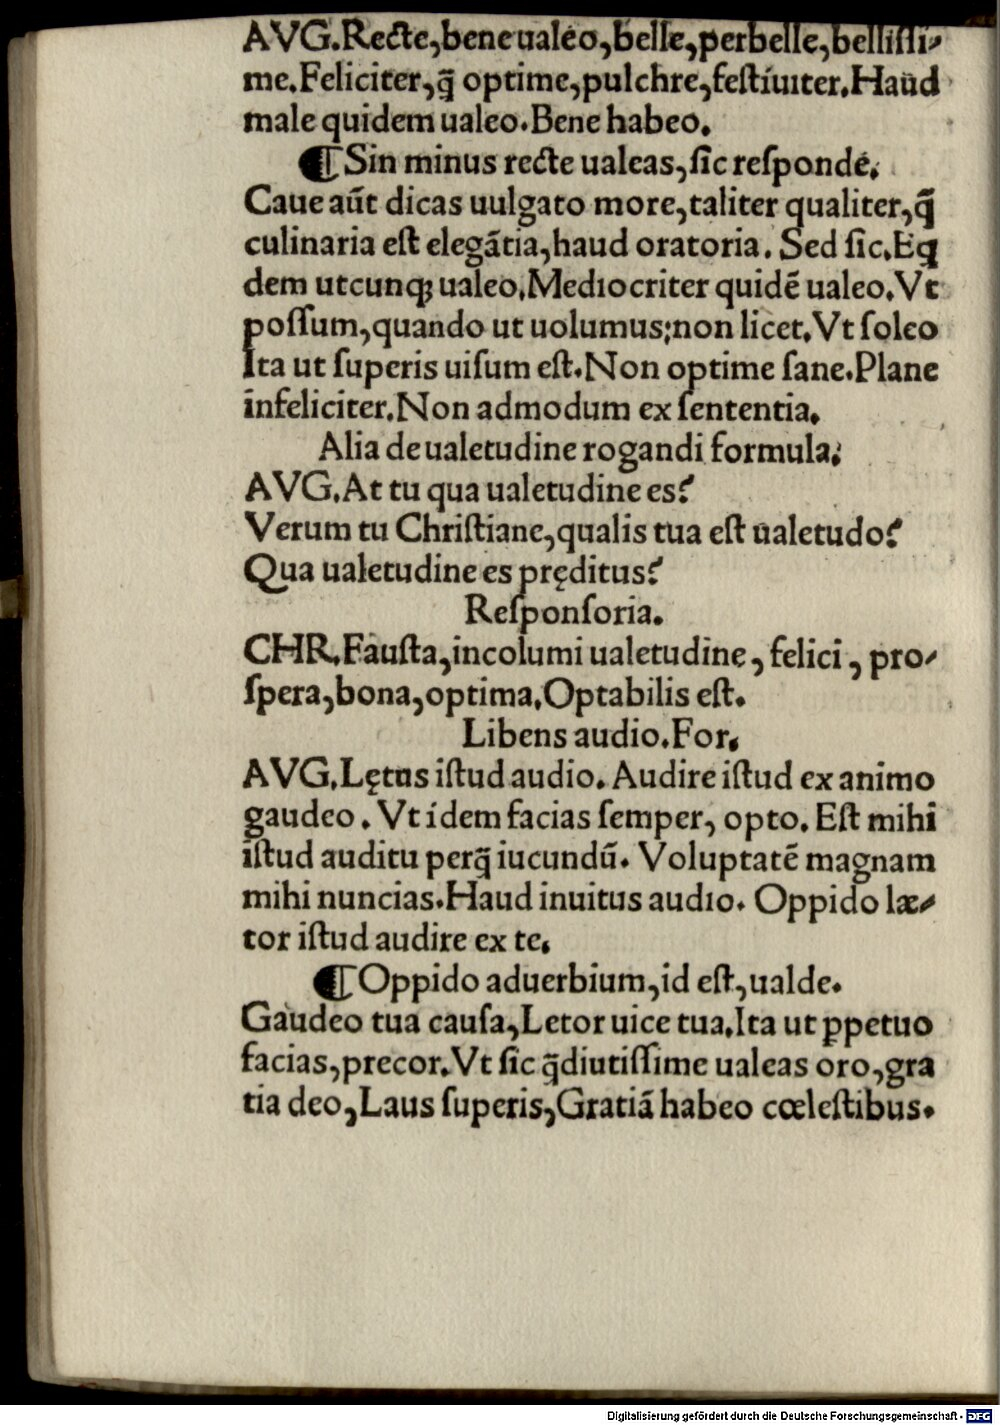 AVG.Recte,bene ualeo,belle,perbelle,bellissi⸗
me.Feliciter,q̄ optime,pulchre,festiuiter.Haud
male quidem ualeo.Bene habeo.
¶Sin minus recte ualeas,sic responde.
Caue aūt dicas uulgato more,taliter qualiter,q̄
culinaria est elegātia,haud oratoria. Sed sic.Eq
dem utcunq; ualeo.Mediocriter quidē ualeo.Vt
possum,quando ut uolumus:non licet.Vt soleo
Ita ut superis uisum est.Non optime sane.Plane
infeliciter.Non admodum ex sententia.
Alia de ualetudine rogandi formula.
AVG.At tu qua ualetudine es?
Verum tu Christiane,qualis tua est ualetudo?
Qua ualetudine es pręditus?
Responsoria.
CHR.Fausta,incolumi ualetudine, felici, pro⸗
spera,bona,optima.Optabilis est.
Libens audio.For.
AVG.Lętus istud audio. Audire istud ex animo
gaudeo. Vt idem facias semper, opto. Est mihi
istud auditu perq̄ iucundū. Voluptatē magnam
mihi nuncias.Haud inuitus audio. Oppido læ⸗
tor istud audire ex te.
¶Oppido aduerbium,id est,ualde.
Gaudeo tua causa,Letor uice tua.Ita ut ꝑpetuo
facias,precor.Vt sic q̄diutissime ualeas oro,gra
tia deo,Laus superis,Gratiā habeo cœlestibus.
Digitalisierung gefördert durch die Deutsche Forschungsgemeinschaft - DFG